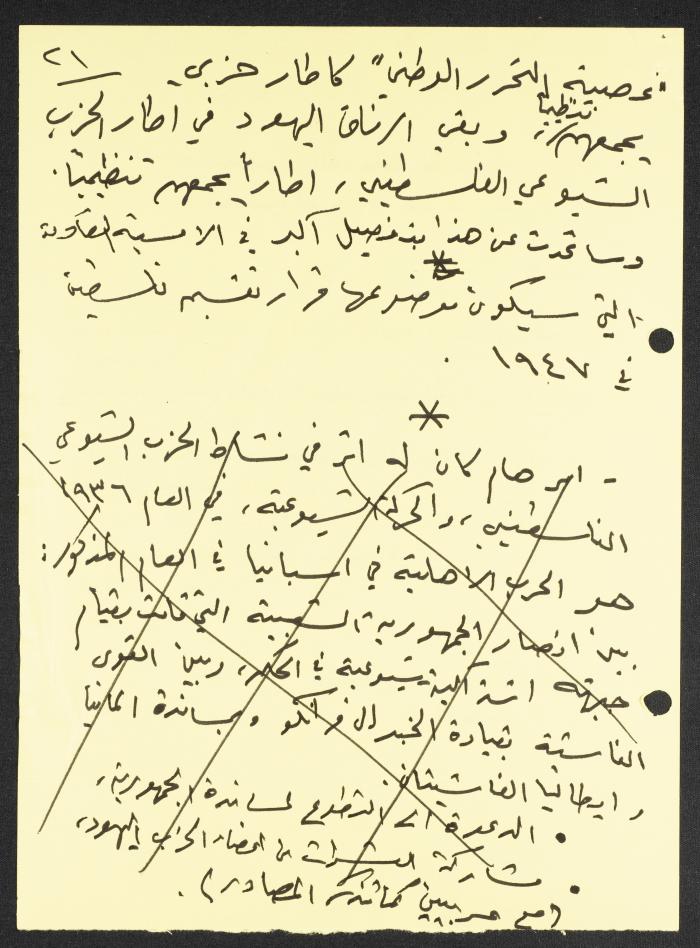 ٢١
"عصبة التحرر الوطني" كاطار حزبي
يجمعهم تنظيميا، وبقي الرفاق اليهود في اطار الحزب
الشيوعي الفلسطيني، اطاراً يجمعهم تنظيمياً.
وسأتحدث عن هذا بتفصيل أكبر في الامسية القادمة
التي سيكون موضوعها قرار تقسيم فلسطين
في ١٩٤٧.
*
- امر هام كان له اثر في نشاط الحزب الشيوعي
الفلسطيني، والحركة الشيوعية، في العام ١٩٣٦
هو الحرب الاهلية في اسبانيا في العام المذكور:
بين انصار الجمهورية الشعبية التي قامت بقيام
جبهة اشتراكية شيوعية في الحكم، وبين القوى
الفاشية بقيادة الجنرال فرانكو وبمساندة المانيا
وايطاليا الفاشيتان.
• الدعوة الى التطوع لمساندة الجمهورية،
• مشاركة العشرات من اعضاء الحزب اليهود،
(مع عربيين كما تذكر المصادر).